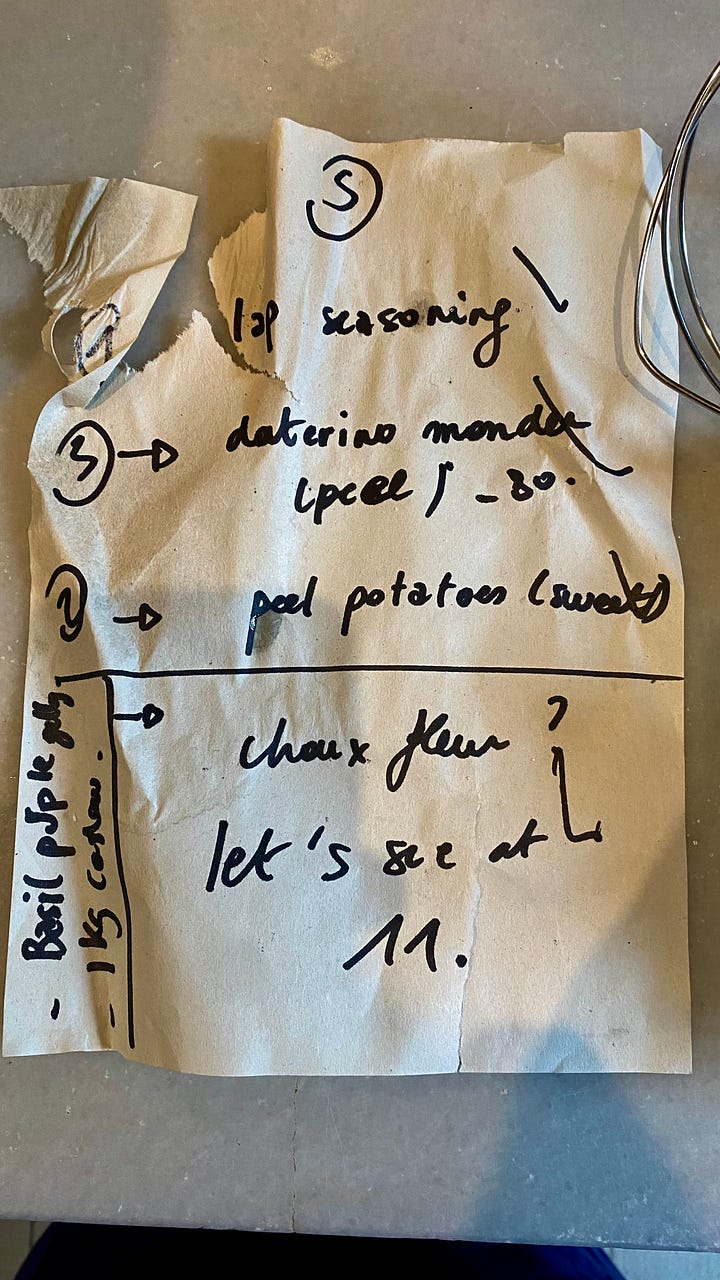 5
seasoning
3 → daterino monder
(peel) - 30.
2 → peel potatoes (sweet)
→ choux fleur ?
let's see at
11.
- Basil purple
- 1 kg cashew.